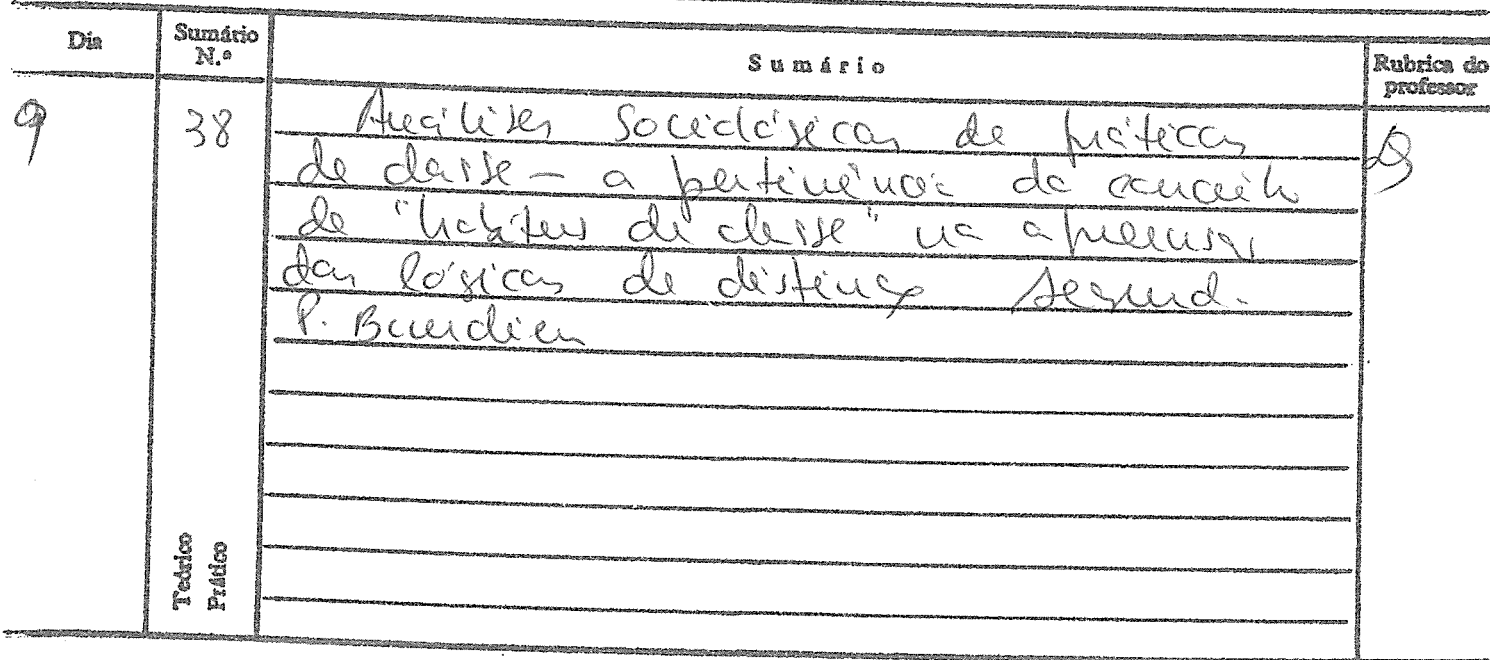 Dia
Sumário N.º
Sumário
Rubrica do professor
9
38
Análises Sociológicas de práticas
de classe — a pertinência do conceito
de "habitus de classe" na apreensão
das lógicas de distinção segundo
P. Bourdieu
Teórico
Prático